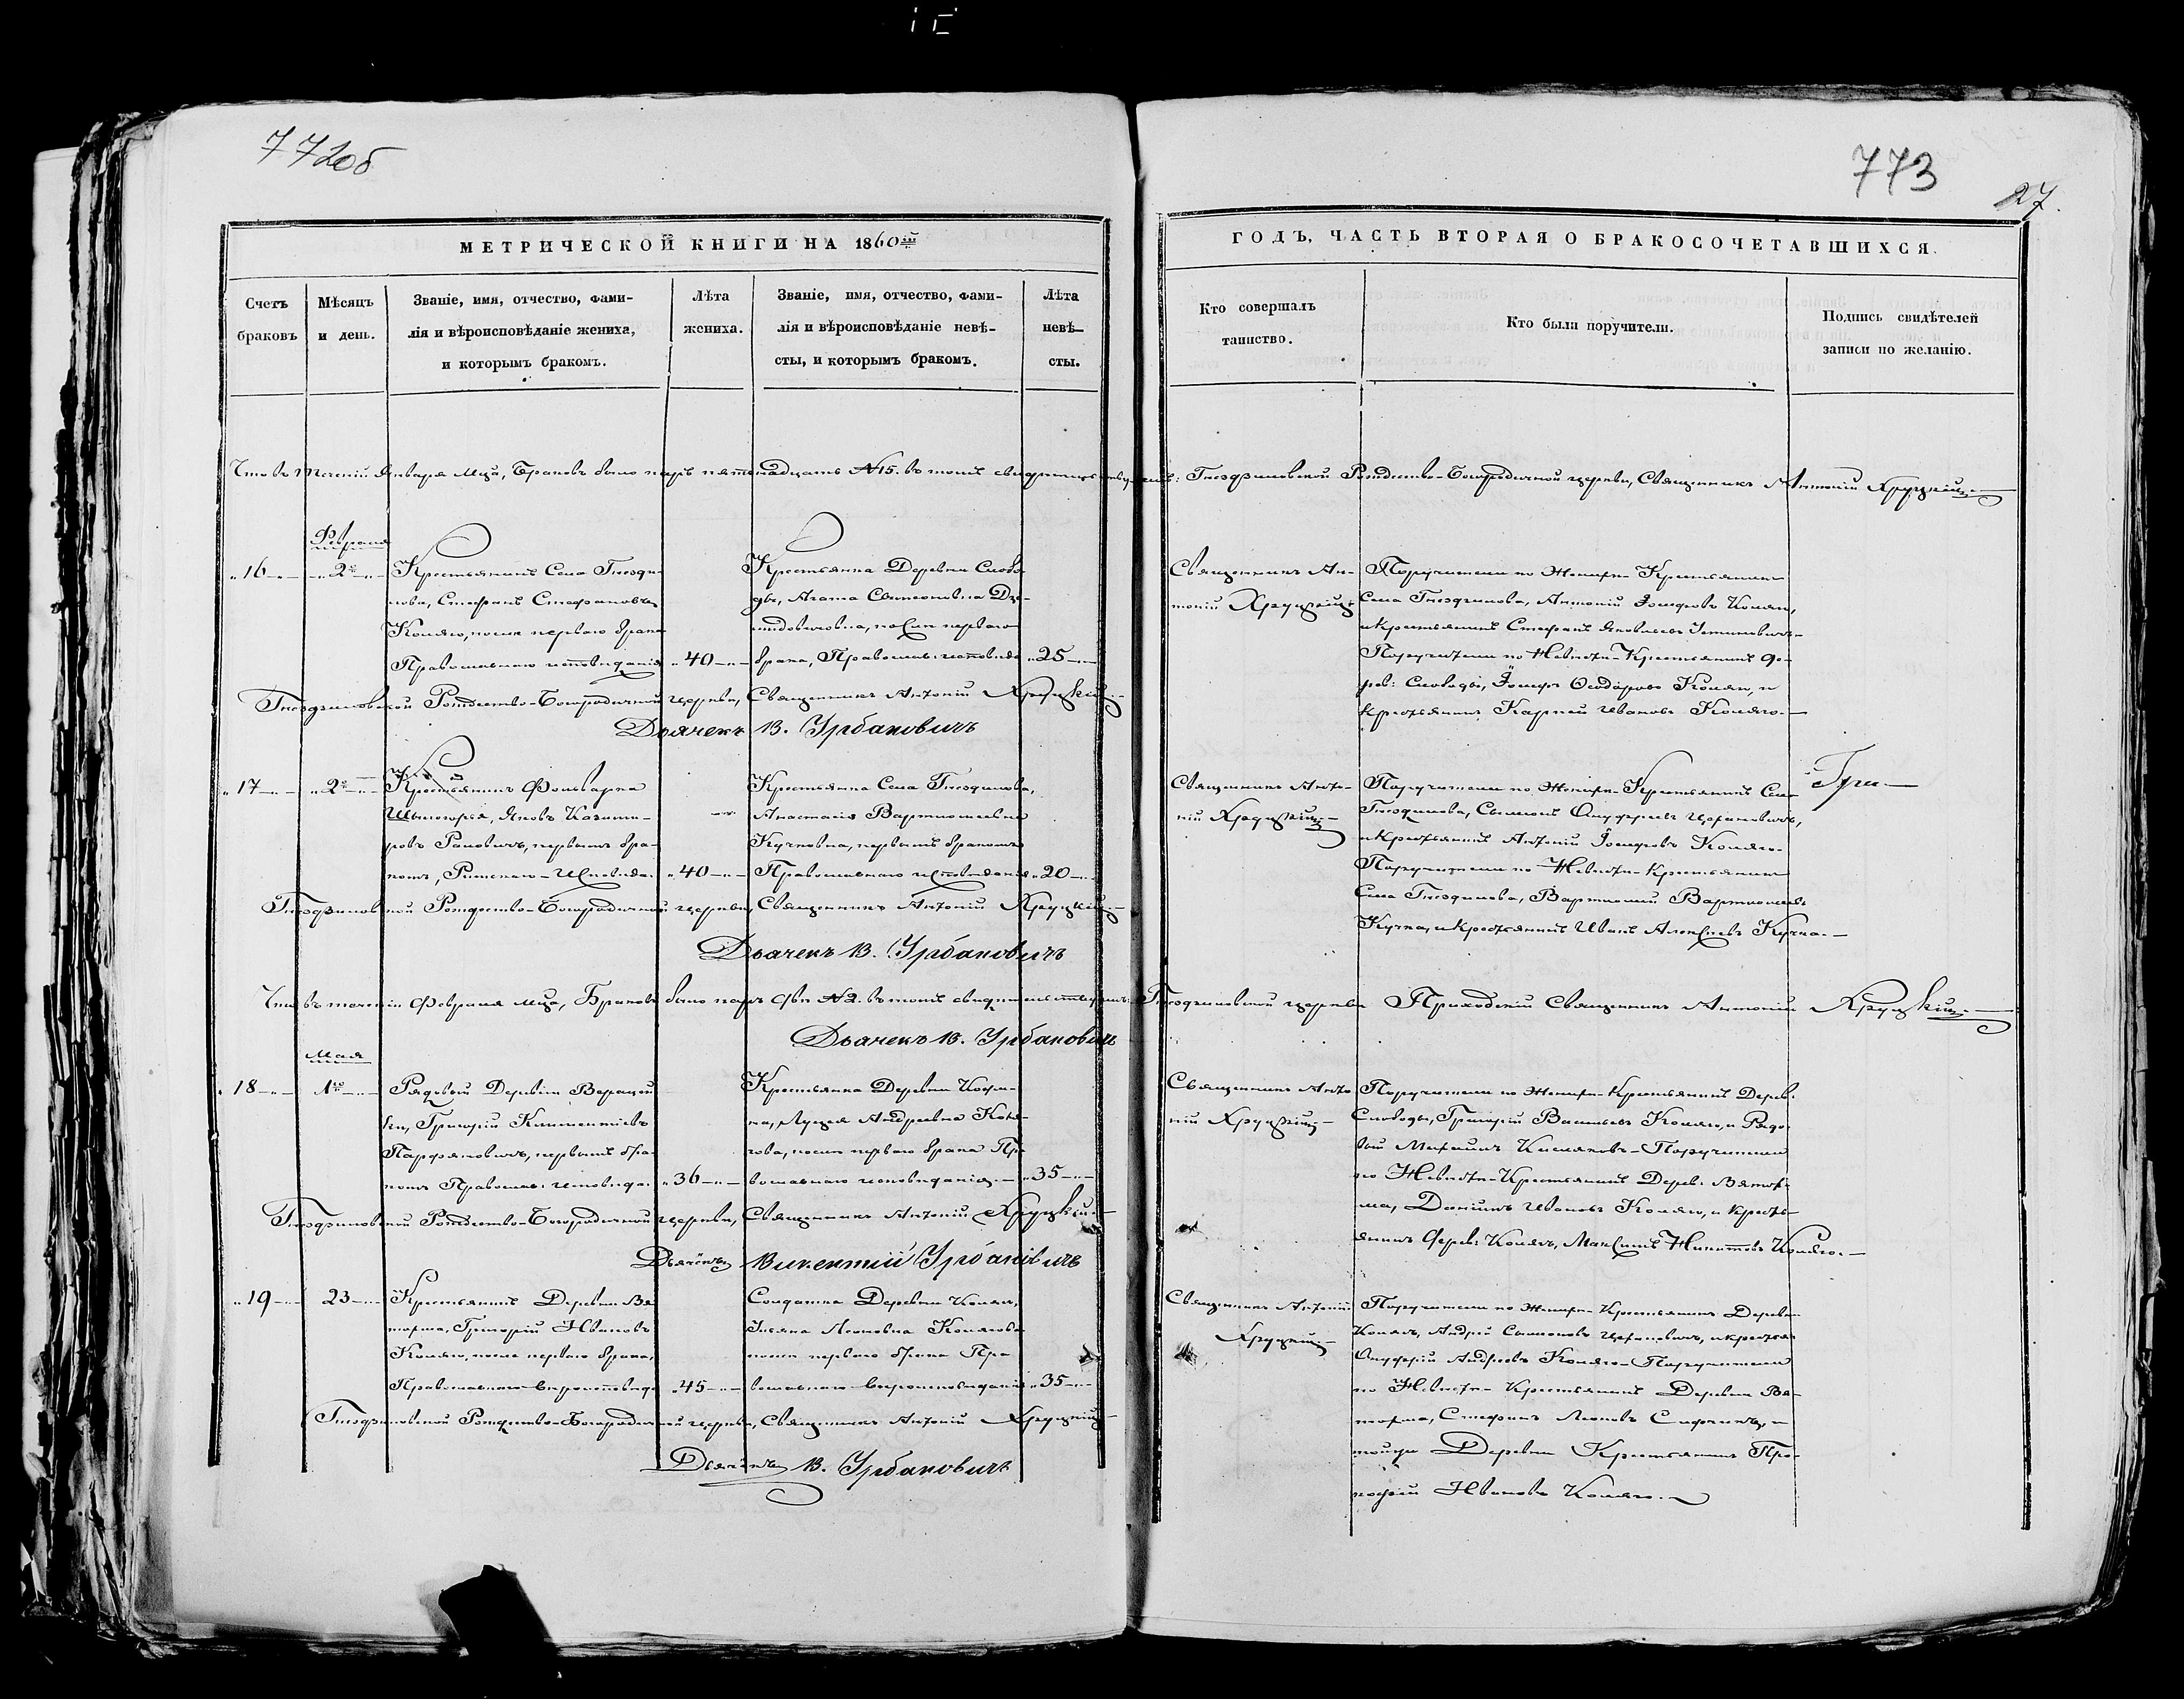 772об
773
27.
МЕТРИЧЕСКОЙ КНИГИ НА 1860й
ГОДЪ, ЧАСТЬ ВТОРАЯ О БРАКОСОЧЕТАВШИХСЯ.
Счетъ браковъ
Мѣсяцъ и день.
Званіе, имя, отчество, фами-
лія и вѣроисповѣданіе жениха,
и которымъ бракомъ.
Лѣта жениха.
Званіе, имя, отчество, фами-
лія и вѣроисповѣданіе невѣ-
сты, и которымъ бракомъ.
Лѣта невѣ-
сты.
Кто совершалъ таинство.
Кто были поручители.
Подпись свидѣтелей
записи по желанію.
Что въ теченіи Января мца, Браковъ было паръ пятнадцать №15. въ томъ : Гнездиловской Рождество-Богородичной церкви, Священникъ Антоній Хруцкій
Февраля
16 2го
Крестьянинъ Села Гнезди-
лова, Стефанъ Стефановъ
Коляго, после перваго брака
Православнаго исповѣданія
40
Крестьянка Деревни Слобо-
ды, Агата
послѣ перваго
брака, Православ: исповѣда
25
Священникъ Ан-
тоній Хруцкій
Поручители по Женихѣ Крестьянинъ
Села Гнездилова, Антоній Іосифовъ Коляго,
и Крестьянинъ Стефанъ Яковлевъ
Поручители по Невѣстѣ Крестьянинъ де-
рев: Слободы, Іосифъ Ѳеодоровъ Коляго, и
Крестьянинъ Карпей Ивановъ Коляго.
Гнездиловской Рождество-Богородичной церкви, Священникъ Антоній Хруцкій
Дьячекъ В. Урбановичъ
17 2го
Крестьянинъ Фольварка
Яковъ Казими-
ровъ первымъ бра-
комъ, Римскаго-Исповѣда:
40
Крестьянка Села Гнездилова,
Анастасія Вартоломеевна
Кучковна, первымъ бракомъ
Православнаго исповѣданія
20
Священникъ Анто-
ній Хруцкій
Поручители по Женихѣ Крестьянинъ Села
Гнездилова, Сымонъ Онуфріевъ
и Крестьянинъ Антоній Іосифовъ Коляго.
Поручители по Невѣстѣ Крестьянинъ
Села Гнездилова, Вартоломей Вартоломеевъ
Кучка, и Крестьянинъ Иванъ Алексѣевъ Кучка.
Гнездиловской Рождество-Богородичной церкви, Священникъ Антоній Хруцкій
Дьячекъ В. Урбановичъ
Что въ теченіи Февраля мца, Браковъ было паръ двѣ №2. въ томъ Гнездиловской церкви Приходскій Священникъ Антоній Хруцкій
Дьячекъ В. Урбановичъ
Мая
18 1го
Рядовый Деревни
Григорій Климентіевъ
Парфяновичъ, первымъ бра-
комъ Православ: исповѣда:
36
Крестьянка Деревни
Луцея Андреевна
послѣ перваго брака Пра
вославнаго исповѣданія.
35
Священникъ Анто
ній Хруцкій
Поручители по Женихѣ Крестьянинъ Дерев:
Слободы, Григорій Васильевъ Коляго, и Рядо-
вый Поручители
по Невѣстѣ Крестьянинъ Дерев:
Ивановъ Коляго, и Кресть-
янинъ Дерев: Максимъ Коляго.
Гнездиловской Рождество-Богородичной церкви, Священникъ Антоній Хруцкій
Дьячекъ Викентій Урбановичъ
19 23
Крестьянинъ Деревни
Григорій Ивановъ
Коляго, после перваго брака,
Православнаго вероисповѣд:
45
Солдатка Деревни
Леоновна Колягова
послѣ перваго брака Пра
вославнаго вероисповѣданія
35
Священникъ Антоній
Хруцкій
Поручители по Женихѣ Крестьянинъ Деревни
Андрей Сымоновъ
Онуфрій Андреевъ Коляго Поручители
по Невѣстѣ Крестьянинъ Деревни
Стефанъ Леоновъ
тойже Деревни Крестьянинъ Про-
кофій Ивановъ Коляго.
Гнездиловской Рождество-Богородичной церкви, Священникъ Антоній Хруцкій
Дьячекъ В. Урбановичъ